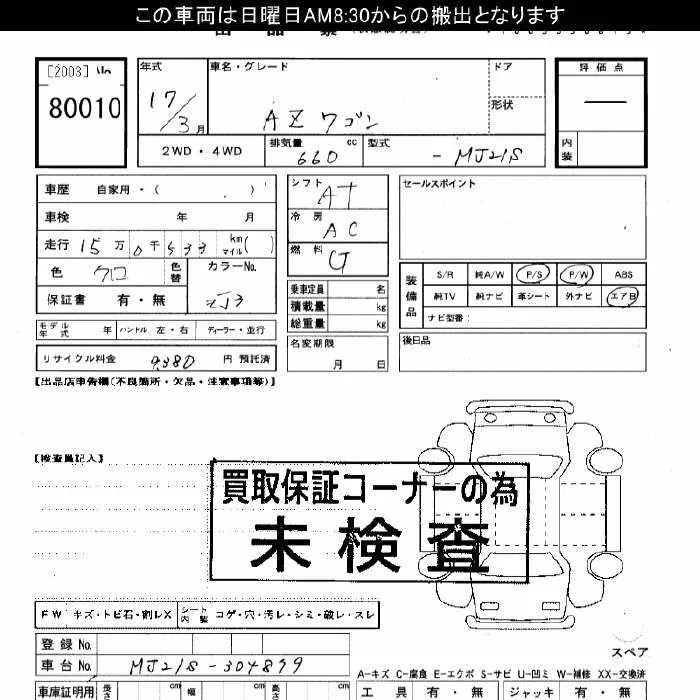 この車両は日曜日AM8:30からの搬出となります
[2003]
80010
年式 17/3月
車名・グレード AZワゴン
ドア
形状
評価点 —
2WD・4WD
排気量 660 cc
型式 -MJ21S
内装
車歴 自家用・( )
車検 年 月
走行 15万0千533 km マイル( )
色 クロ 色替
カラーNo. ZJ3
保証書 有・無
シフト AT
冷房 AC
燃料 G
乗車定員 名
積載量 kg
総重量 kg
セールスポイント
装備品
S/R 純A/W P/S P/W ABS
純TV 純ナビ 革シート 外ナビ エアB
ナビ型番:
モデル年式 年 ハンドル 左・右 ディーラー・並行
名変期限 月 日
後日品
リサイクル料金 9,380 円 預託済
【出品店申告欄(不良箇所・欠品・注意事項等)】
【検査員記入】
買取保証コーナーの為
未検査
FW キズ・トビ石・割レX シート内装 コゲ・穴・汚レ・シミ・破レ・スレ
登録No.
車台No. MJ21S-304899
スペア
A-キズ C-腐食 E-エクボ S-サビ U-凹ミ W-補修 XX-交換済
車庫証明用 長さ cm 幅 cm 高さ cm
工具 有・無 ジャッキ 有・無